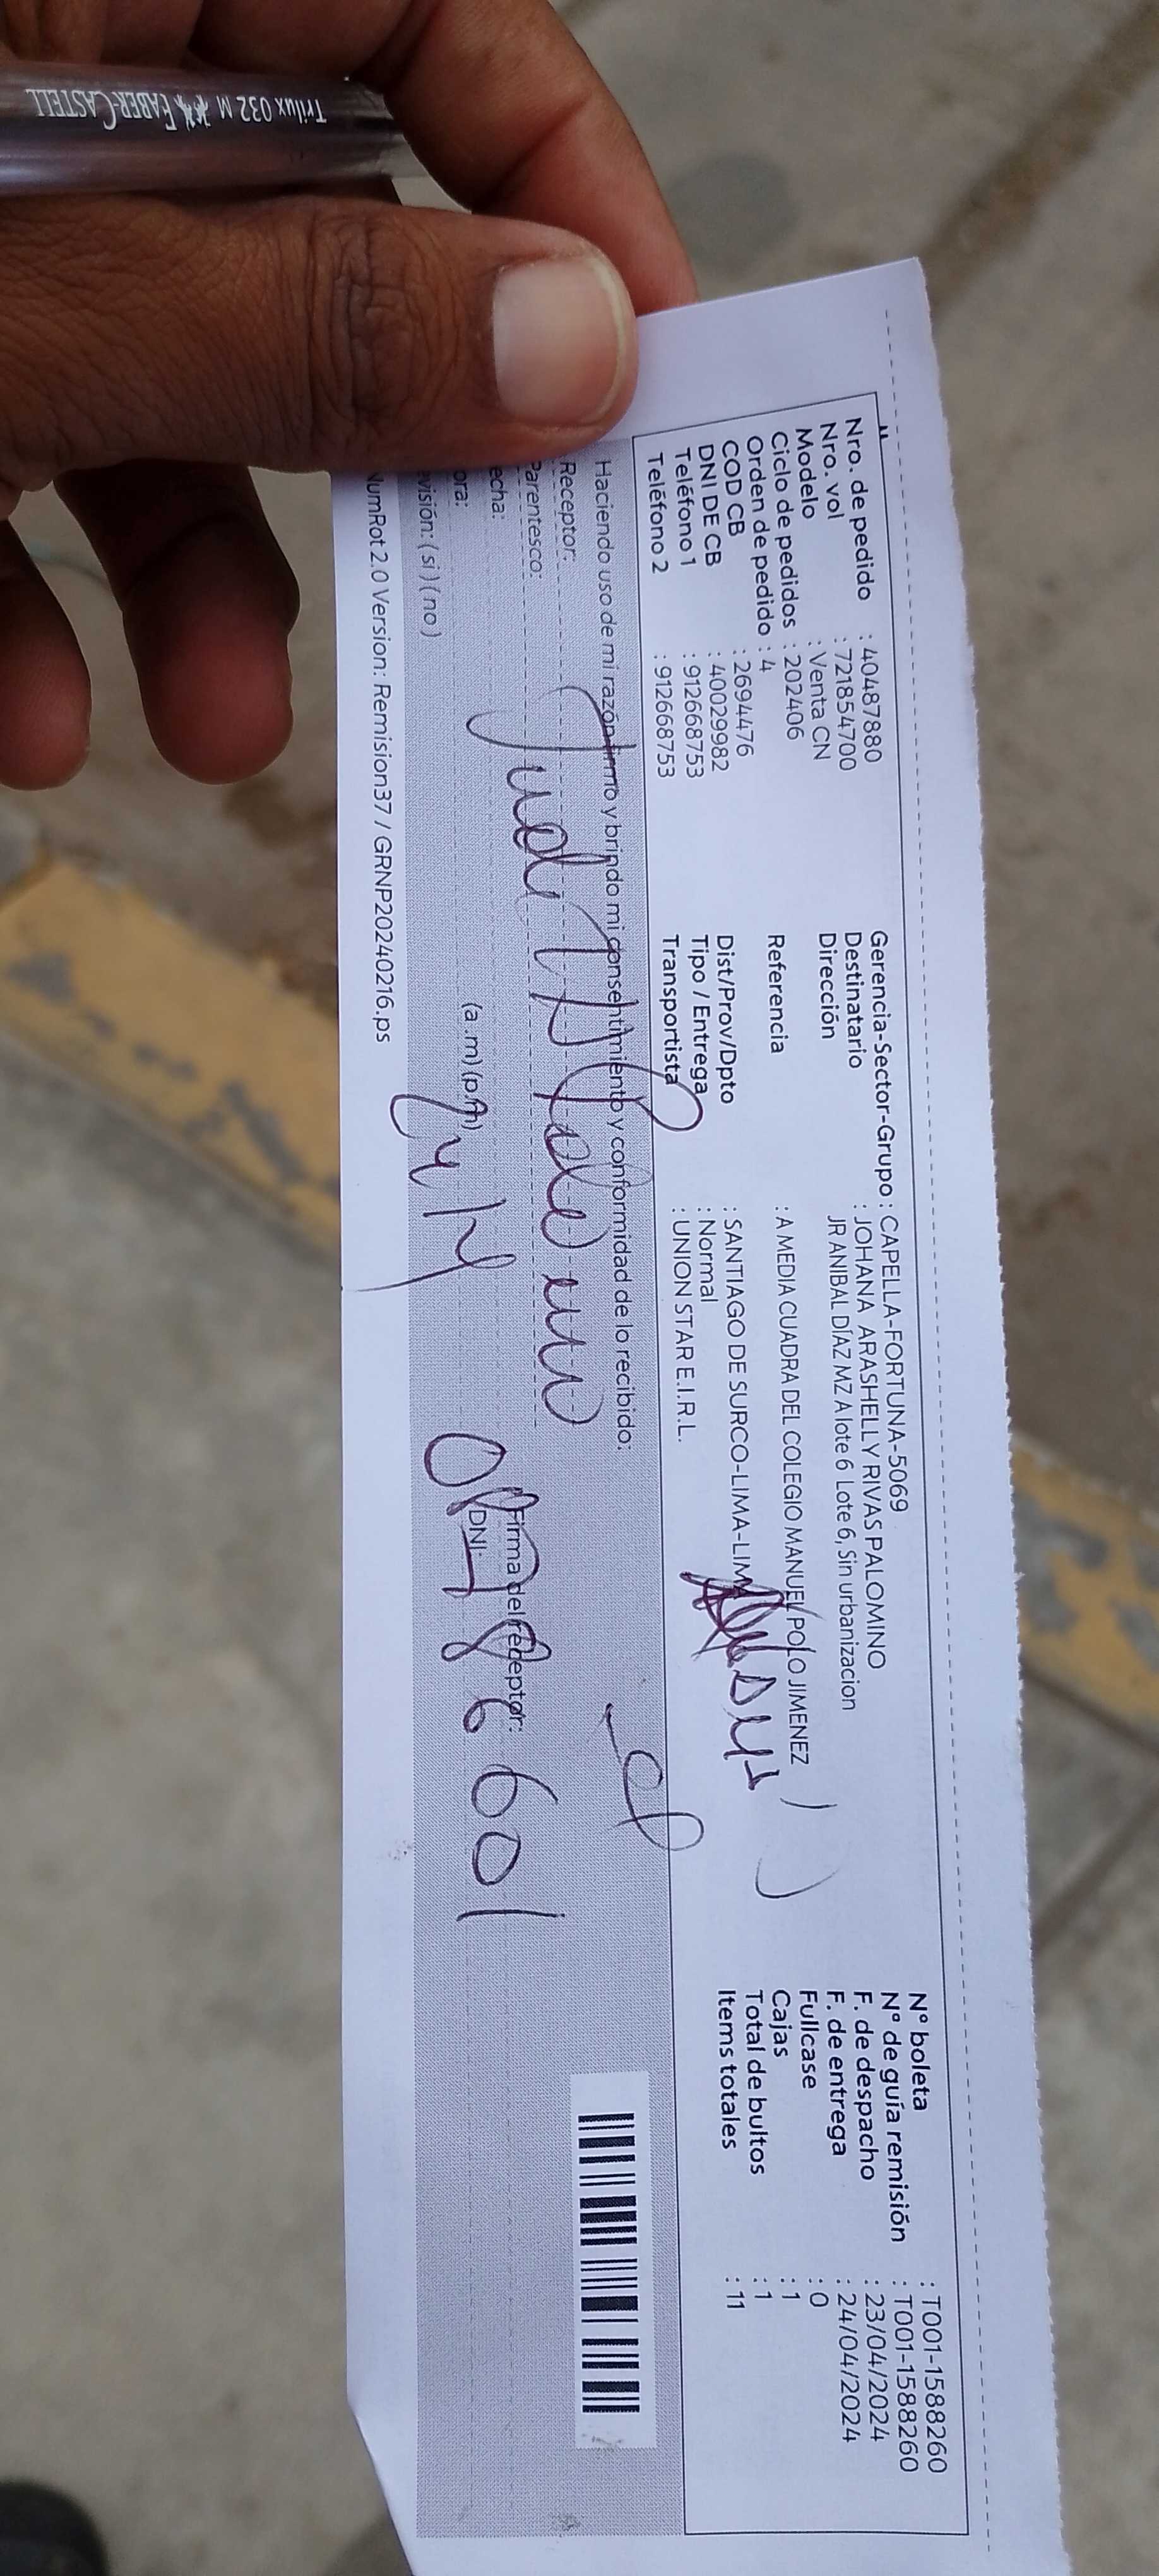 Trilux 032 M FABER-CASTELL
Nro. de pedido : 40487880
Nro. vol : 721854700
Modelo : Venta CN
Ciclo de pedidos : 202406
Orden de pedido : 4
COD CB : 2694476
DNI DE CB : 40029982
Teléfono 1 : 912668753
Teléfono 2 : 912668753
Gerencia-Sector-Grupo : CAPELLA-FORTUNA-5069
Destinatario : JOHANA ARASHELLY RIVAS PALOMINO
Dirección JR ANIBAL DÍAZ MZ A lote 6 Lote 6, Sin urbanizacion
Referencia : A MEDIA CUADRA DEL COLEGIO MANUEL POLO JIMENEZ
Dist/Prov/Dpto : SANTIAGO DE SURCO-LIMA-LIMA
Tipo / Entrega : Normal
Transportista : UNION STAR E.I.R.L.
N° boleta : T001-1588260
N° de guía remisión : T001-1588260
F. de despacho : 23/04/2024
F. de entrega : 24/04/2024
Fullcase : 0
Cajas : 1
Total de bultos : 1
Items totales : 11
Haciendo uso de mi razón firmo y brindo mi consentimiento y conformidad de lo recibido:
Receptor:
Parentesco:
echa:
ora: (a.m) (p.m)
evisión: ( si ) ( no )
Firma del receptor:
DNI:
NumRot 2.0 Version: Remision37 / GRNP20240216.ps